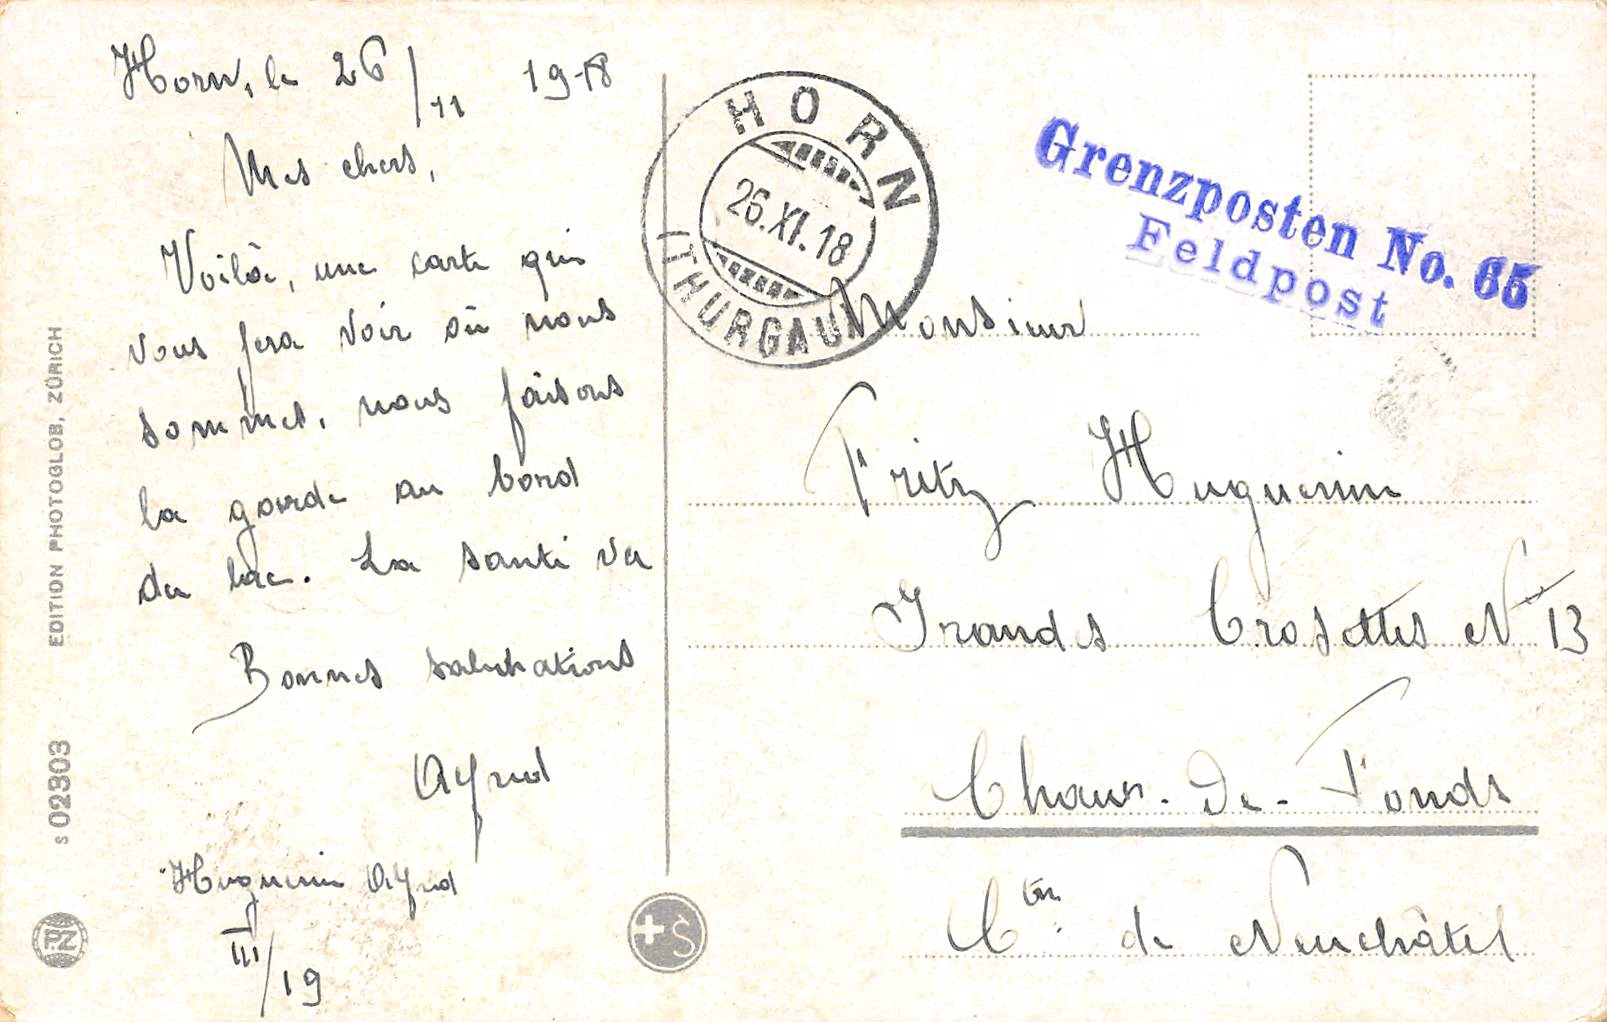 Horn, le 26/11 1918
Mes chers,
Voilà, une carte qui
vous fera voir où nous
sommes, nous faisons
la garde au bord
du lac. La santé va
Bonnes salutations
Alfred
Huguenin Alfred
III/19
HORN
26.XI.18
(THURGAU)
Grenzposten No. 65
Feldpost
Monsieur
Fritz Huguenin
Grandes Crosettes No 13
Chaux-de-Fonds
Cton de Neuchâtel
EDITION PHOTOGLOB, ZÜRICH
S 02303
PZ
+S